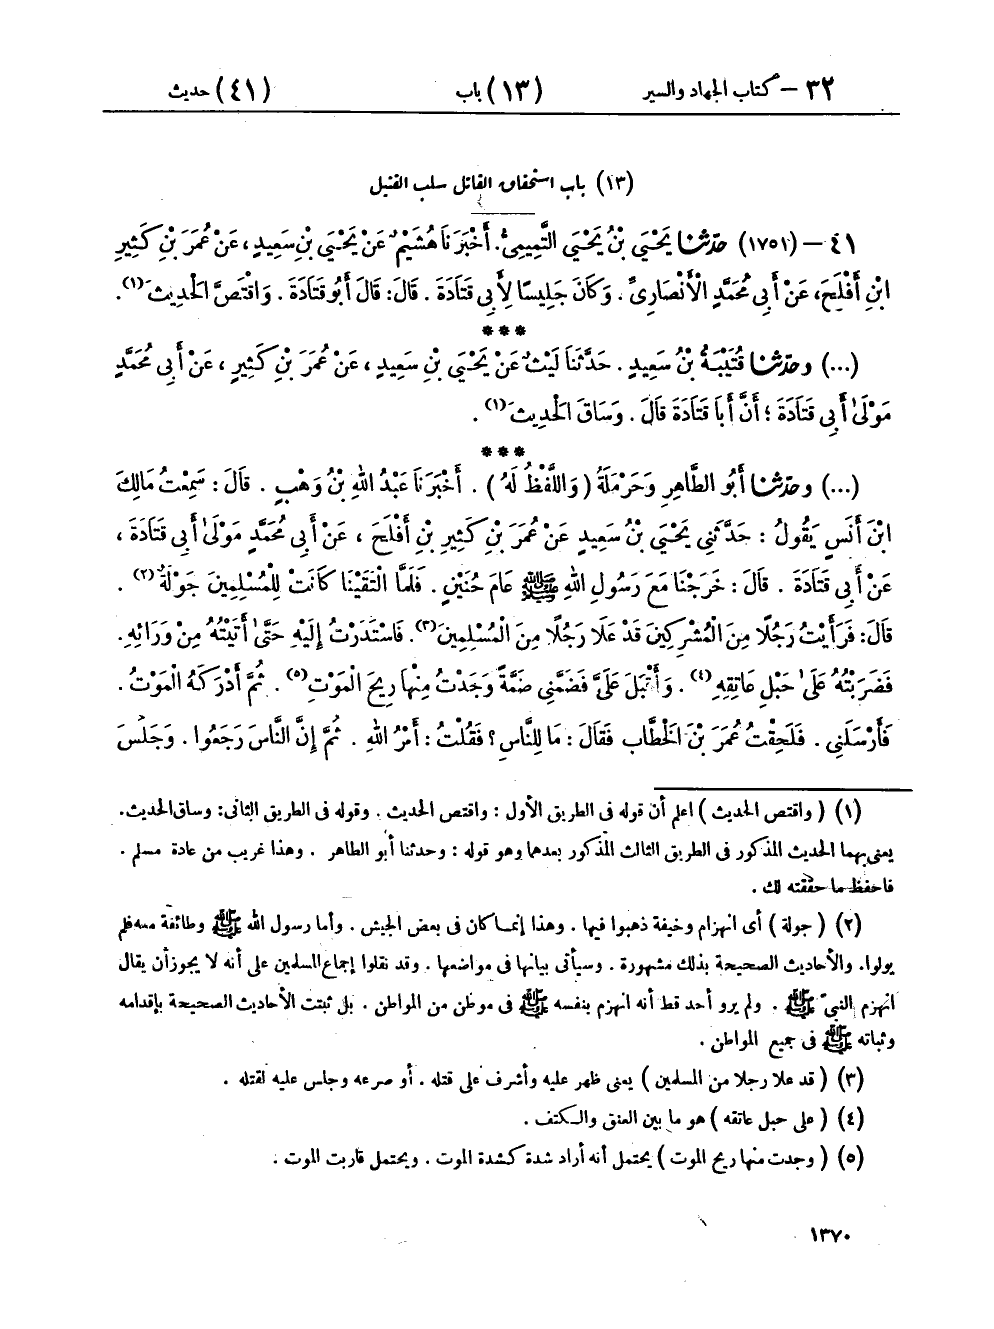 ٣٢ – كتاب الجهاد والسير (١٣) باب (٤١) حديث
(١٣) باب استحقاق القاتل سلب القتيل
٤١ – (١٧٥١) حدّثنا يَحْيَى بْنُ يَحْيَى التَّمِيمِيُّ. أَخْبَرَنَا هُشَيْمٌ عَنْ يَحْيَى بْنِ سَعِيدٍ، عَنْ عُمَرَ بْنِ كَثِيرِ
ابْنِ أَفْلَحَ، عَنْ أَبِي مُحَمَّدٍ الْأَنْصَارِيِّ. وَكَانَ جَلِيسًا لِأَبِي قَتَادَةَ. قَالَ: قَالَ أَبُو قَتَادَةَ. وَاقْتَصَّ الْحَدِيثَ(١).
***
(...) وحدّثنا قُتَيْبَةُ بْنُ سَعِيدٍ. حَدَّثَنَا لَيْثٌ عَنْ يَحْيَى بْنِ سَعِيدٍ، عَنْ عُمَرَ بْنِ كَثِيرٍ، عَنْ أَبِي مُحَمَّدٍ
مَوْلَىٰ أَبِي قَتَادَةَ؛ أَنَّ أَبَا قَتَادَةَ قَالَ. وَسَاقَ الْحَدِيثَ(١).
***
(...) وحدّثنا أَبُو الطَّاهِرِ وَحَرْمَلَةُ (وَاللَّفْظُ لَهُ). أَخْبَرَنَا عَبْدُ اللهِ بْنُ وَهْبٍ. قَالَ: سَمِعْتُ مَالِكَ
ابْنَ أَنَسٍ يَقُولُ: حَدَّثَنِي يَحْيَى بْنُ سَعِيدٍ عَنْ عُمَرَ بْنِ كَثِيرِ بْنِ أَفْلَحَ، عَنْ أَبِي مُحَمَّدٍ مَوْلَىٰ أَبِي قَتَادَةَ،
عَنْ أَبِي قَتَادَةَ. قَالَ: خَرَجْنَا مَعَ رَسُولِ اللهِ ﷺ عَامَ حُنَيْنٍ. فَلَمَّا الْتَقَيْنَا كَانَتْ لِلْمُسْلِمِينَ جَوْلَةٌ(٢).
قَالَ: فَرَأَيْتُ رَجُلًا مِنَ الْمُشْرِكِينَ قَدْ عَلَا رَجُلًا مِنَ الْمُسْلِمِينَ(٣). فَاسْتَدَرْتُ إِلَيْهِ حَتَّىٰ أَتَيْتُهُ مِنْ وَرَائِهِ.
فَضَرَبْتُهُ عَلَىٰ حَبْلِ عَاتِقِهِ(٤). وَأَقْبَلَ عَلَيَّ فَضَمَّنِي ضَمَّةً وَجَدْتُ مِنْهَا رِيحَ الْمَوْتِ(٥). ثُمَّ أَدْرَكَهُ الْمَوْتُ.
فَأَرْسَلَنِي. فَلَحِقْتُ عُمَرَ بْنَ الْخَطَّابِ فَقَالَ: مَا لِلنَّاسِ؟ فَقُلْتُ: أَمْرُ اللهِ. ثُمَّ إِنَّ النَّاسَ رَجَعُوا. وَجَلَسَ
(١) (واقتص الحديث) اعلم أن قوله فى الطريق الأول: واقتص الحديث. وقوله فى الطريق الثانى: وساق الحديث.
يعنى بهما الحديث المذكور فى الطريق الثالث المذكور بعدهما وهو قوله: وحدثنا أبو الطاهر. وهذا غريب من عادة مسلم.
فاحفظ ما حققته لك.
(٢) (جولة) أى انهزام وخيفة ذهبوا فيها. وهذا إنما كان فى بعض الجيش. وأما رسول الله ﷺ وطائفة معه فلم
يولوا. والأحاديث الصحيحة بذلك مشهورة. وسيأتى بيانها فى مواضعها. وقد نقلوا إجماع المسلمين على أنه لا يجوز أن يقال
انهزم النبىّ ﷺ. ولم يرو أحد قط أنه انهزم بنفسه ﷺ فى موطن من المواطن. بل ثبتت الأحاديث الصحيحة بإقدامه
وثباته ﷺ فى جميع المواطن.
(٣) (قد علا رجلا من المسلمين) يعنى ظهر عليه وأشرف على قتله. أو صرعه وجلس عليه لقتله.
(٤) (على حبل عاتقه) هو ما بين العنق والكتف.
(٥) (وجدت منها ريح الموت) يحتمل أنه أراد شدة كشدة الموت. ويحتمل قاربت الموت.
١٣٧٠